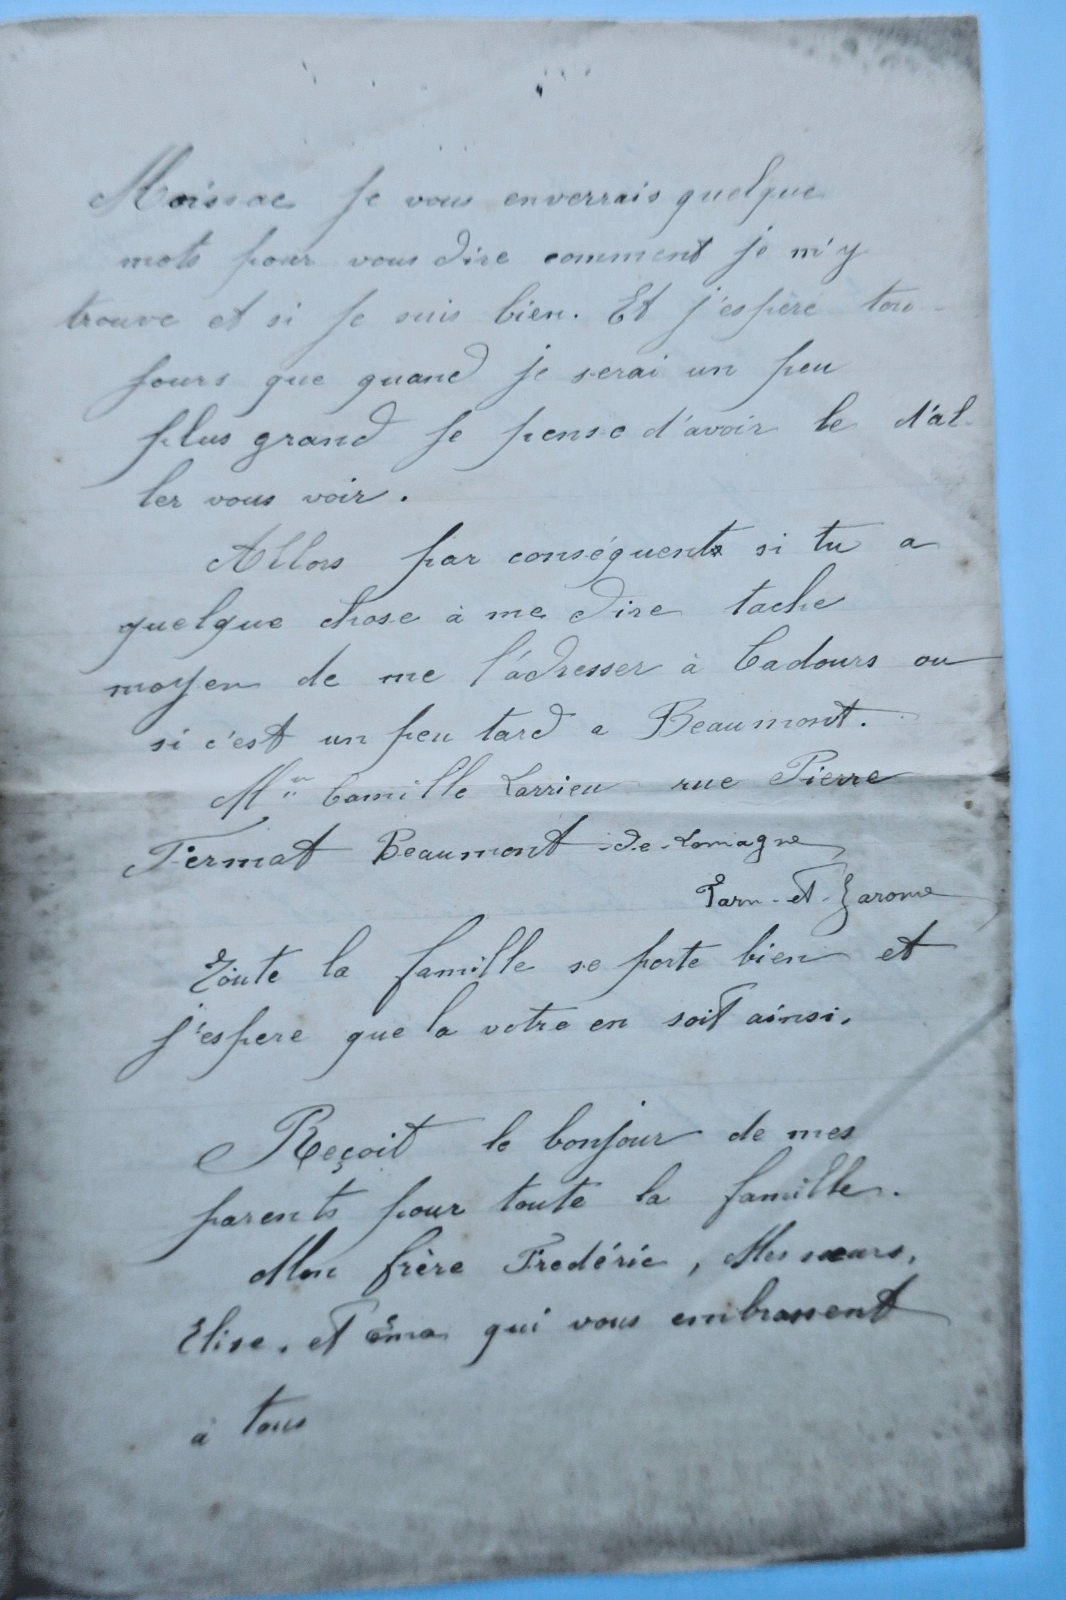 Moissac je vous enverrais quelque
mots pour vous dire comment je m'y
trouve et si je suis bien. Et j'espère tou-
jours que quand je serai un peu
plus grand je pense d'avoir le d'al-
ler vous voir.
Allors par conséquents si tu a
quelque chose à me dire tache
moyen de me l'adresser à Cadours ou
si c'est un peu tard a Beaumont.
Camille Larrieu rue Pierre
Fermat Beaumont-de-Lomagne
Tarn-et-Garonne
Toute la famille se porte bien et
j'espere que la votre en soit ainsi.
Reçoit le bonjour de mes
parents pour toute la famille.
Mon frère Frédéric, Mes sœurs,
Elise, et Ema qui vous embrassent
à tous